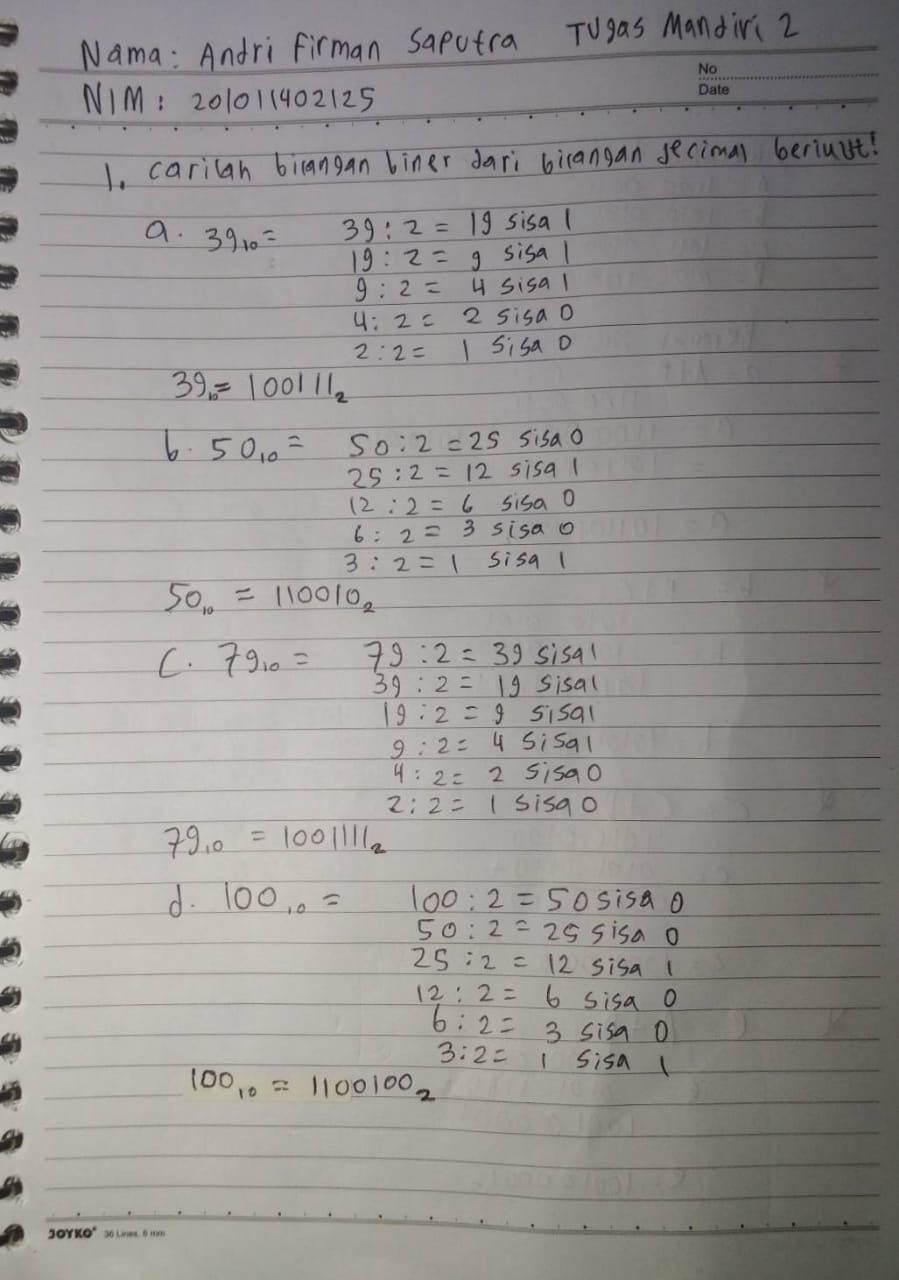 Nama: Andri Firman Saputra Tugas Mandiri 2
NIM: 201011402125
No
Date
1. Carilah bilangan biner dari bilangan decimal berikut!
a. 39₁₀= 39 : 2 = 19 sisa 1
19 : 2 = 9 sisa 1
9 : 2 = 4 sisa 1
4 : 2 = 2 sisa 0
2 : 2 = 1 sisa 0
39₁₀= 100111₂
b. 50₁₀= 50 : 2 = 25 sisa 0
25 : 2 = 12 sisa 1
12 : 2 = 6 sisa 0
6 : 2 = 3 sisa 0
3 : 2 = 1 sisa 1
50₁₀ = 110010₂
C. 79₁₀ = 79 : 2 = 39 sisa 1
39 : 2 = 19 sisa 1
19 : 2 = 9 sisa 1
9 : 2 = 4 sisa 1
4 : 2 = 2 sisa 0
2 : 2 = 1 sisa 0
79₁₀ = 1001111₂
d. 100₁₀ = 100 : 2 = 50 sisa 0
50 : 2 = 25 sisa 0
25 : 2 = 12 sisa 1
12 : 2 = 6 sisa 0
6 : 2 = 3 sisa 0
3 : 2 = 1 sisa 1
100₁₀ = 1100100₂
JOYKO® 36 Lines, 6 mm